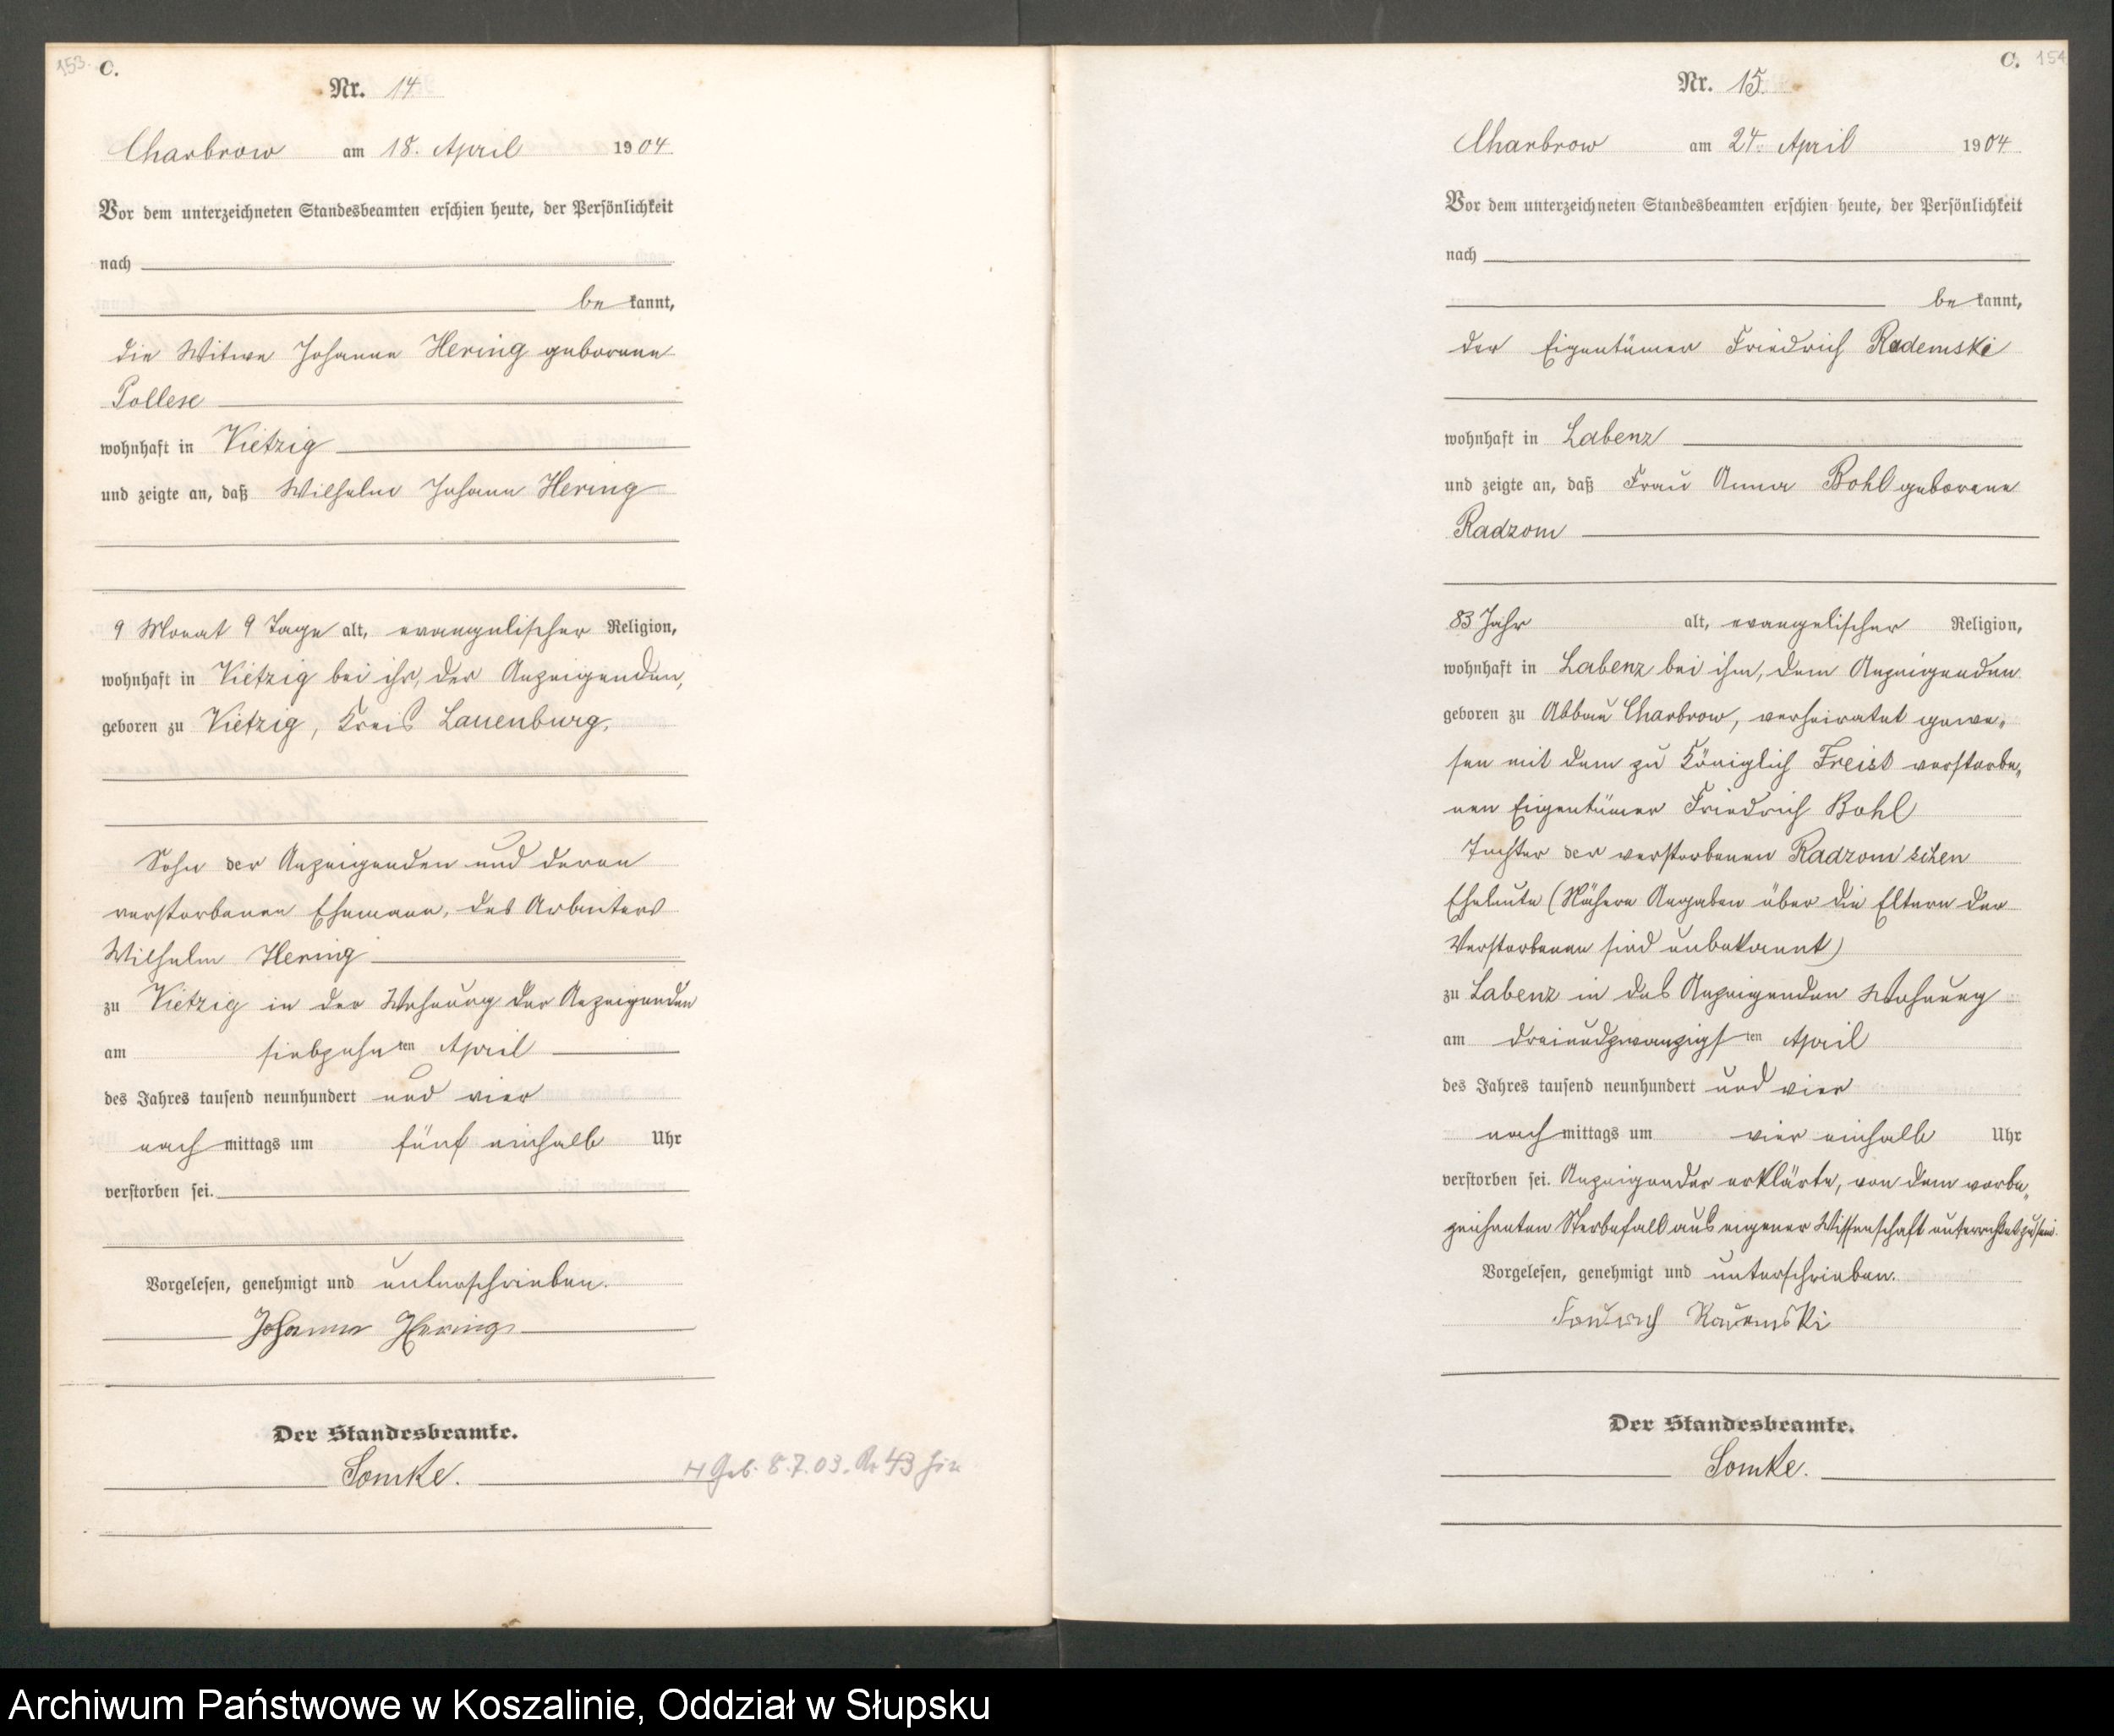 153.
C.
Nr. 14.
Charbrow am 18. April 1904.
Vor dem unterzeichneten Standesbeamten erschien heute, der Persönlichkeit
nach
be kannt,
die Witwe Johanne Hering geborene
Pollese
wohnhaft in Vietzig
und zeigte an, daß Wilhelm Johann Hering
9 Monat 9 Tage alt, evangelischer Religion,
wohnhaft in Vietzig bei ihr, der Anzeigenden,
geboren zu Vietzig, Kreis Lauenburg,
Sohn der Anzeigenden und deren
verstorbenen Ehemann, des Arbeiters
Wilhelm Hering
zu Vietzig in der Wohnung der Anzeigenden
am siebzehn ten April
des Jahres tausend neunhundert und vier
nach mittags um fünf einhalb Uhr
verstorben sei.
Vorgelesen, genehmigt und unterschrieben.
Johanne Hering
Der Standesbeamte.
Lomke.
Geb. 8.7.03. Nr 43 hier
C. 154
Nr. 15.
Charbrow am 24. April 1904.
Vor dem unterzeichneten Standesbeamten erschien heute, der Persönlichkeit
nach
be kannt,
der Eigentümer Friedrich Rademski
wohnhaft in Labenz
und zeigte an, daß Frau Anna Bohl geborene
Radzom
83 Jahr alt, evangelischer Religion,
wohnhaft in Labenz bei ihm, dem Anzeigenden
geboren zu Abbau Charbrow, verheiratet gewe-
sen mit dem zu Königlich Freist verstorbe-
nen Eigentümer Friedrich Bohl
Tochter der verstorbenen Radzom'schen
Eheleute (Nähere Angaben über die Eltern der
Verstorbenen sind unbekannt)
zu Labenz in des Anzeigenden Wohnung
am dreiundzwanzigs ten April
des Jahres tausend neunhundert und vier
nach mittags um vier einhalb Uhr
verstorben sei. Anzeigender erklärte, von dem vorbe-
zeichneten Sterbefall aus eigener Wissenschaft unterrichtet zu sein.
Vorgelesen, genehmigt und unterschrieben.
Friedrich Rademski
Der Standesbeamte.
Lomke.
Archiwum Państwowe w Koszalinie, Oddział w Słupsku